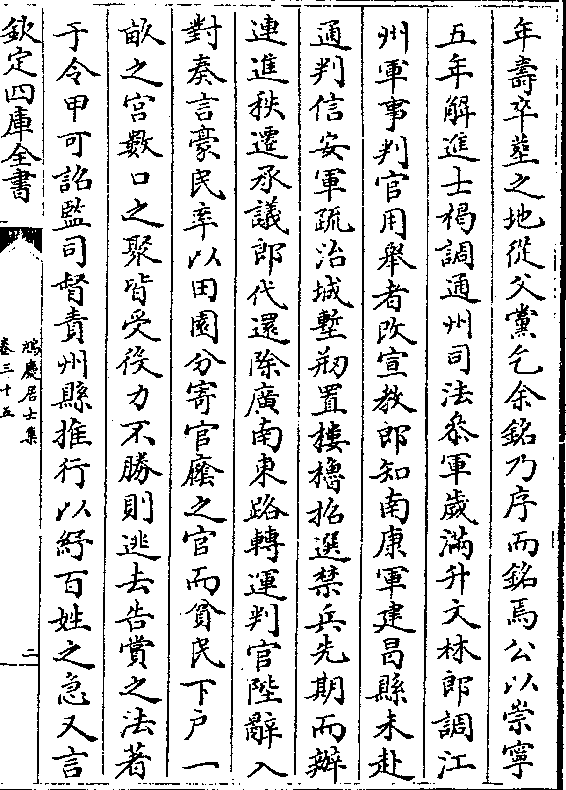 年壽卒塟之地從父黨乞余銘乃序而銘焉公以崇寧
五年解進士褐調通州司法叅軍歲滿升文林郎調江
州軍事判官用舉者改宣教郎知南康軍建昌縣未赴
通判信安軍疏治城塹剏置樓櫓招選禁兵先期而辦
連進秩遷承議郎代還除廣南東路轉運判官陛辭入
對奏言豪民率以田園分寄官廕之官而貧民下户一
畝之宫數口之聚皆受役力不勝則逃去告賞之法著
于令甲可詔監司督責州縣推行以紓百姓之急又言
欽定四庫全書
鴻慶居士集
卷三十五
二